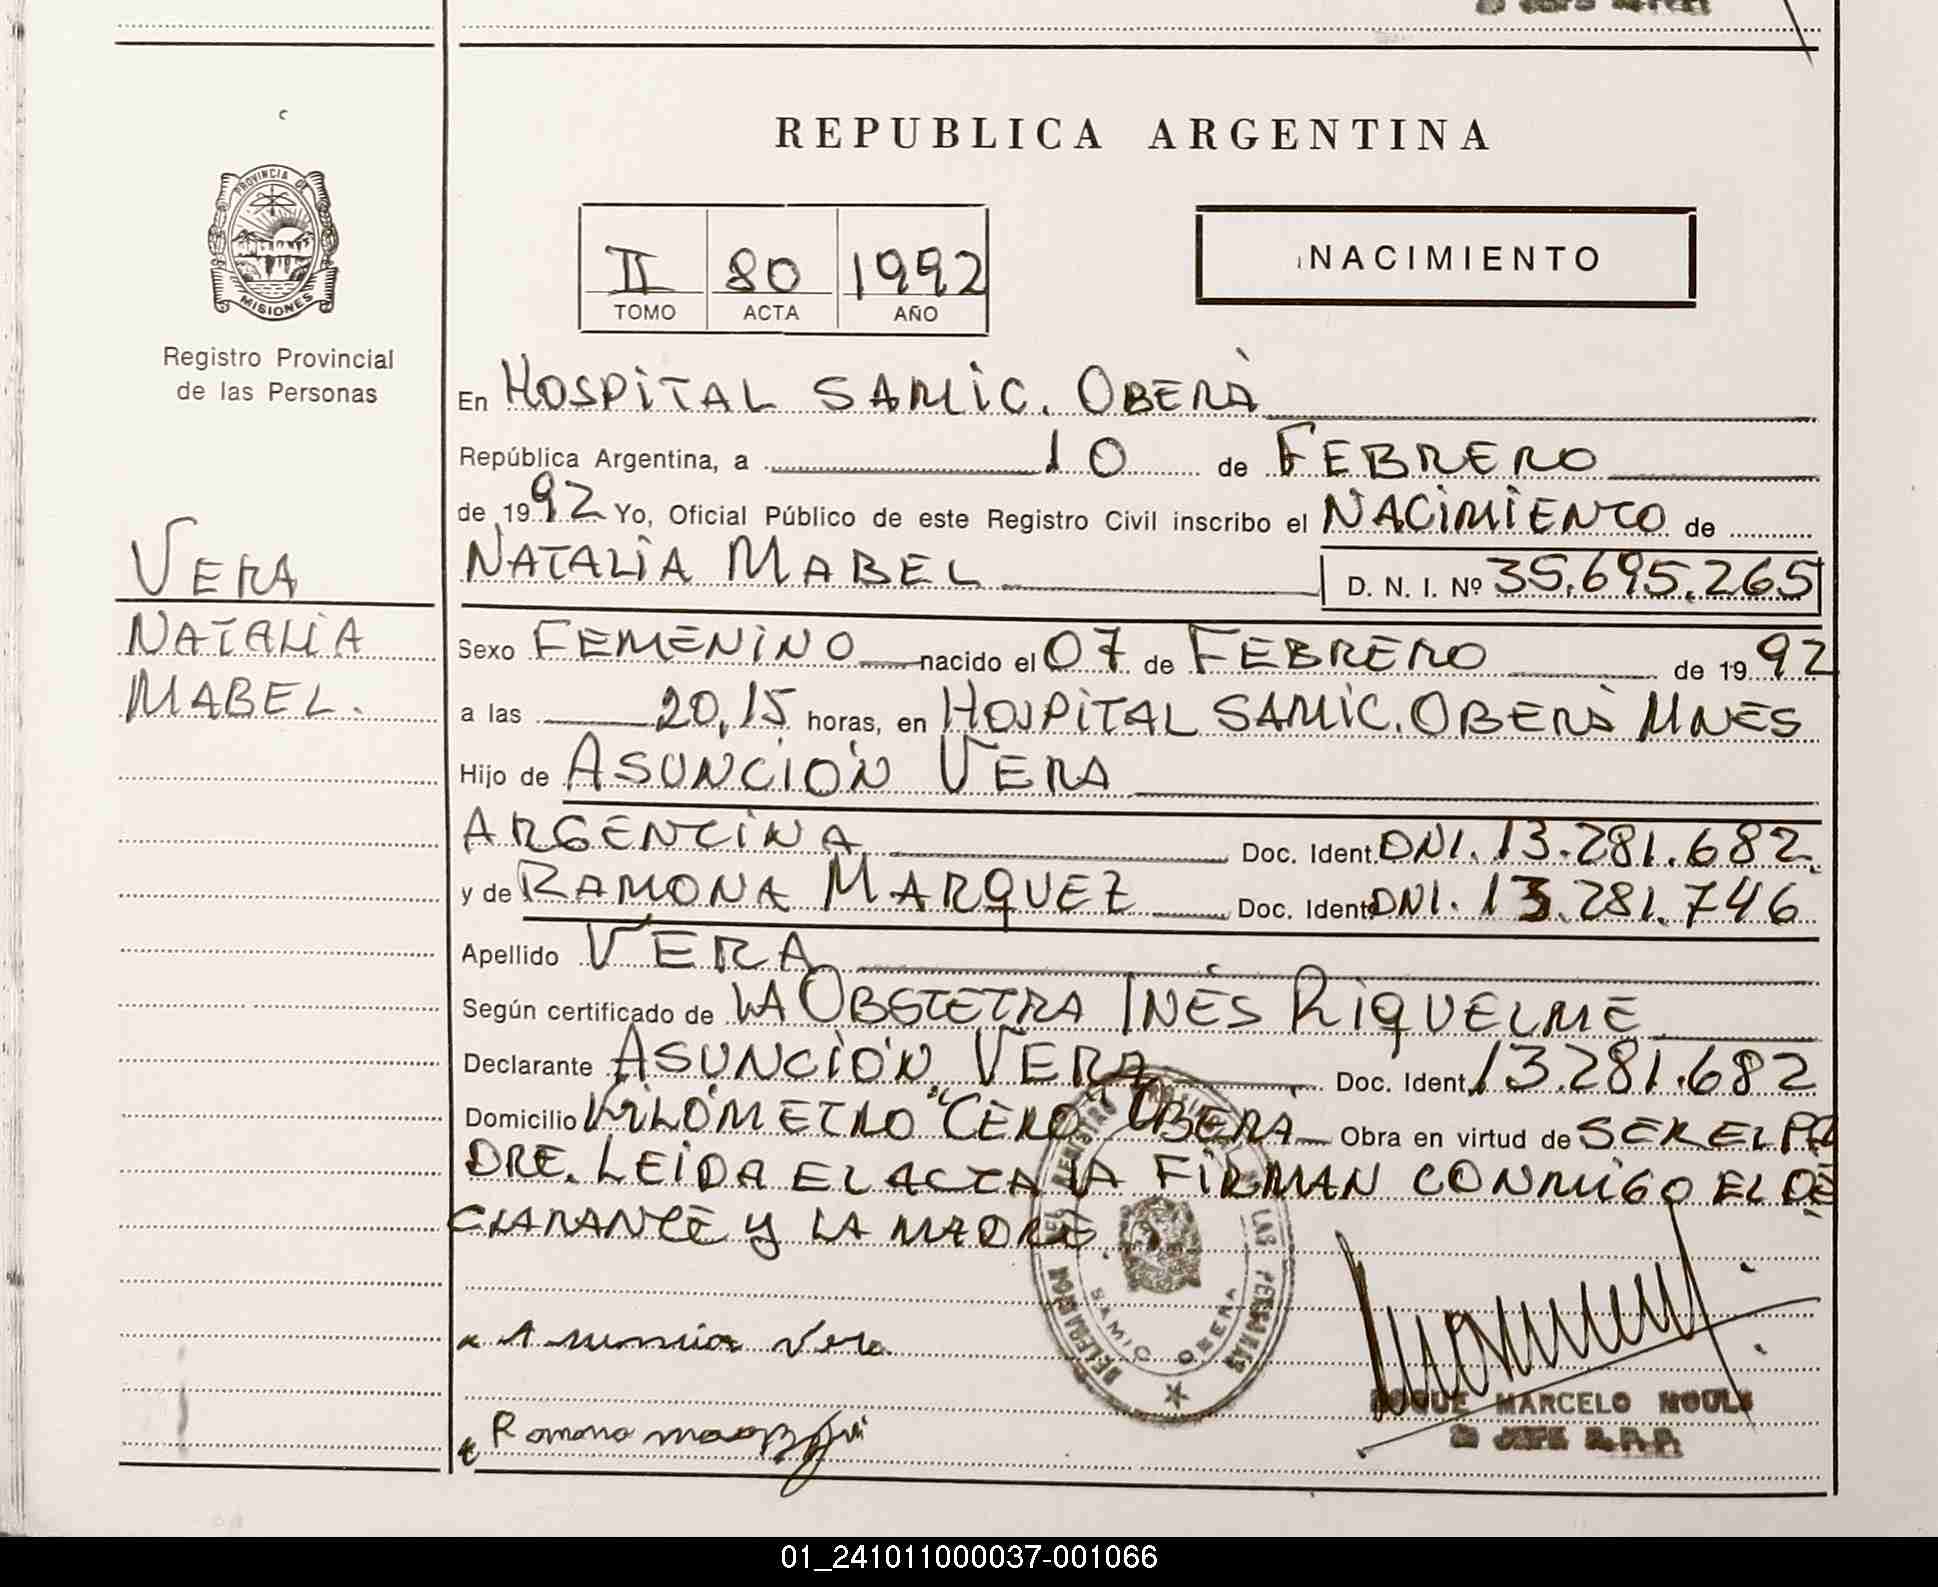 REPUBLICA ARGENTINA
PROVINCIA DE
MISIONES
Registro Provincial
de las Personas
II 80 1992
TOMO ACTA AÑO
NACIMIENTO
En HOSPITAL SAMIC. OBERÀ
República Argentina, a 10 de FEBRERO
de 1992 Yo, Oficial Público de este Registro Civil inscribo el NACIMIENTO de
VERA
NATALIA
MABEL.
NATALIA MABEL D. N. I. Nº 35.695.265
Sexo FEMENINO nacido el 07 de FEBRERO de 1992
a las 20,15 horas, en HOSPITAL SAMIC. OBERÀ MNES
Hijo de ASUNCIÓN VERA
ARGENTINA Doc. Ident. DNI. 13.281.682
y de RAMONA MARQUEZ Doc. Ident. DNI. 13.281.746
Apellido VERA
Según certificado de LA OBSTETRA INÉS RIQUELME
Declarante ASUNCIÓN VERA Doc. Ident. 13.281.682
Domicilio KILÓMETRO "CERO" OBERÁ Obra en virtud de SER EL PA
DRE. LEIDA EL ACTA LA FIRMAN CONMIGO EL DE
CLARANTE Y LA MADRE.
DELEGACION DEL REGISTRO LAS PERSONAS
SAMIC OBERA
Asuncion Vera
Ramona
ROQUE MARCELO
JEFE R.P.P.
01_241011000037-001066